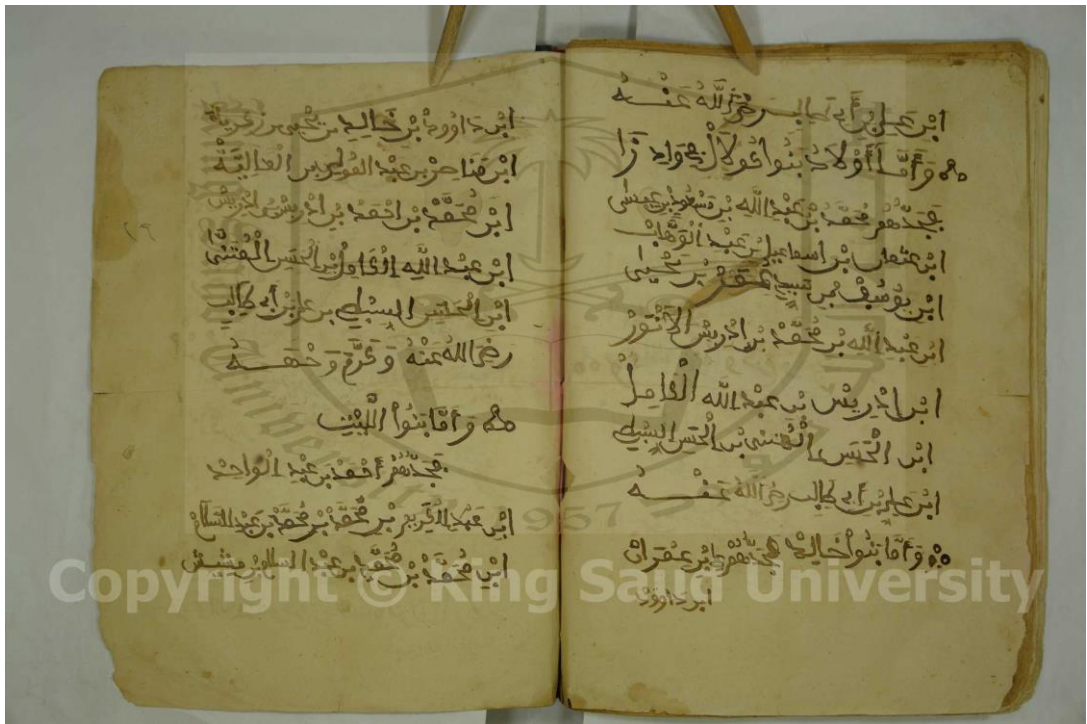 ابن علي بن أبي طالب رضي الله عنه
وأما أولاد بنوا
فجدهم محمد بن عبد الله بن مسعود بن عيسى
ابن عثمان ابن اسماعيل بن عبد الوهاب
ابن يوسف بن بن يحيى
ابن عبد الله بن محمد بن ادريس الأنور
ابن ادريس بن عبد الله الكامل
ابن الحسن المثنى بن الحسن السبط
ابن علي بن أبي طالب رضي الله عنه
وأما بنوا خالد فجدهم ابن عمران
ابن داوود
ابن داوود بن خالد بن يحيى بن
ابن بن عبد بن
ابن محمد بن احمد بن ادريس بن ادريس
ابن عبد الله الكامل بن الحسن المثنى
ابن الحسن السبط بن علي بن أبي طالب
رضي الله عنه وكرم وجهه
وأما بنوا الليث
فجدهم أحمد بن عبد الواحد
ابن عبد الكريم بن محمد بن محمد بن عبد السلام
ابن محمد بن محمد بن عبد السلام بن مشيش
Copyright © King Saud University
1957